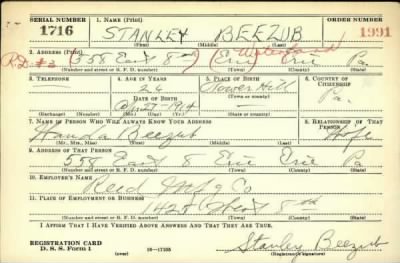 SERIAL NUMBER 1. NAME (Print) ORDER NUMBER
1716 STANLEY BEEZUB 1991
(First) (Middle) (Last)
2. ADDRESS (Print)
R.D. #2 558 East 8th (Erie) Erie Pa.
(Number and street or R. F. D. number) (Town) (County) (State)
3. TELEPHONE 4. AGE IN YEARS 5. PLACE OF BIRTH 6. COUNTRY OF CITIZENSHIP
26 Tower Hill Pa.
DATE OF BIRTH (Town or county)
(Mo.) (Day) (Yr.) (State or country)
7. NAME OF PERSON WHO WILL ALWAYS KNOW YOUR ADDRESS 8. RELATIONSHIP OF THAT PERSON
Wanda Beezub Wife
(Mr., Mrs., Miss) (First) (Middle) (Last)
9. ADDRESS OF THAT PERSON
558 East 8 Erie Erie Pa
(Number and street or R. F. D. number) (Town) (County) (State)
10. EMPLOYER'S NAME
Reed Mfg Co
11. PLACE OF EMPLOYMENT OR BUSINESS
1425 West 8th
(Number and street or R. F. D. number) (Town) (County) (State)
I AFFIRM THAT I HAVE VERIFIED ABOVE ANSWERS AND THAT THEY ARE TRUE.
REGISTRATION CARD
D. S. S. Form 1 16-17105 Stanley Beezub
(Registrant's signature)